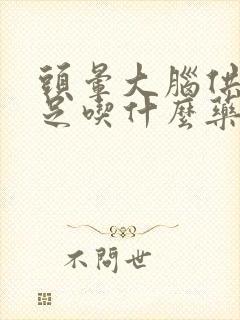 頭暈大腦供
足喫什麼藥
不問世